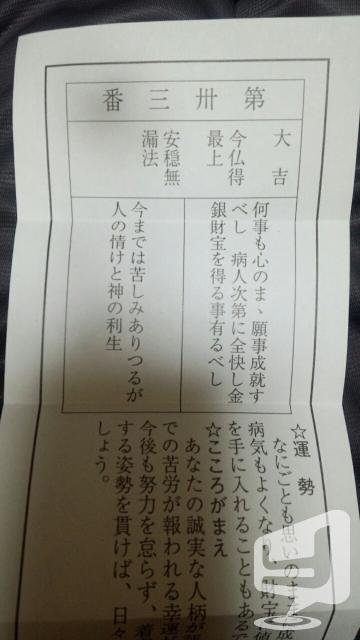 第卅三番
大吉
今仏得
最上
安穏無
漏法
何事も心のまゝ願事成就す
べし 病人次第に全快し金
銀財宝を得る事有るべし
今までは苦しみありつるが
人の情けと神の利生
☆運勢
なにごとも思いのまま
病気もよくなり、財宝
を手に入れることもある
☆こころがまえ
あなたの誠実な人柄が
での苦労が報われる幸運
今後も努力を怠らず、着
する姿勢を貫けば、日々
しょう。